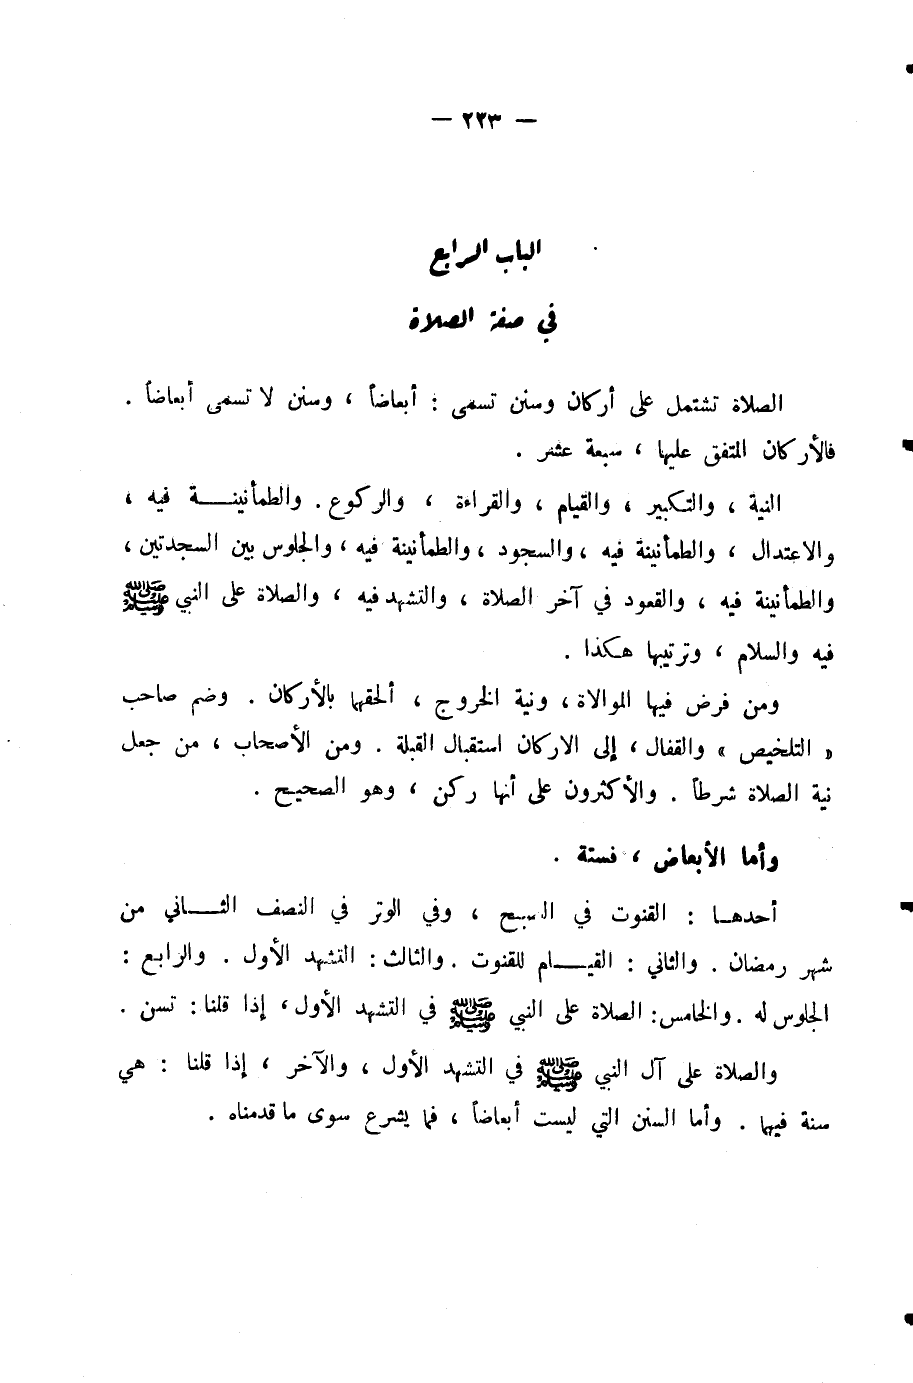 — ٢٢٣ —
الباب الرابع
في صفة الصلاة
الصلاة تشتمل على أركان وسنن تسمى : أبعاضاً ، وسنن لا تسمى أبعاضاً .
فالأركان المتفق عليها ، سبعة عشر .
النية ، والتكبير ، والقيام ، والقراءة ، والركوع . والطمأنينــة فيه ،
والاعتدال ، والطمأنينة فيه ، والسجود ، والطمأنينة فيه ، والجلوس بين السجدتين ،
والطمأنينة فيه ، والقعود في آخر الصلاة ، والتشهد فيه ، والصلاة على النبي ﷺ
فيه والسلام ، وترتيبها هـكذا .
ومن فرض فيها الموالاة ، ونية الخروج ، ألحقها بالأركان . وضم صاحب
« التلخيص » والقفال ، إلى الاركان استقبال القبلة . ومن الأصحاب ، من جعل
نية الصلاة شرطاً . والأكثرون على أنها ركن ، وهو الصحيح .
وأما الأبعاض ، فستة .
أحدهـا : القنوت في الصبح ، وفي الوتر في النصف الثـــاني من
شهر رمضان . والثاني : القيـــام للقنوت . والثالث : التشهد الأول . والرابع :
الجلوس له . والخامس : الصلاة على النبي ﷺ في التشهد الأول ، إذا قلنا : تسن .
والصلاة على آل النبي ﷺ في التشهد الأول ، والآخر ، إذا قلنا : هي
سنة فيها . وأما السنن التي ليست أبعاضاً ، فما يشرع سوى ما قدمناه .